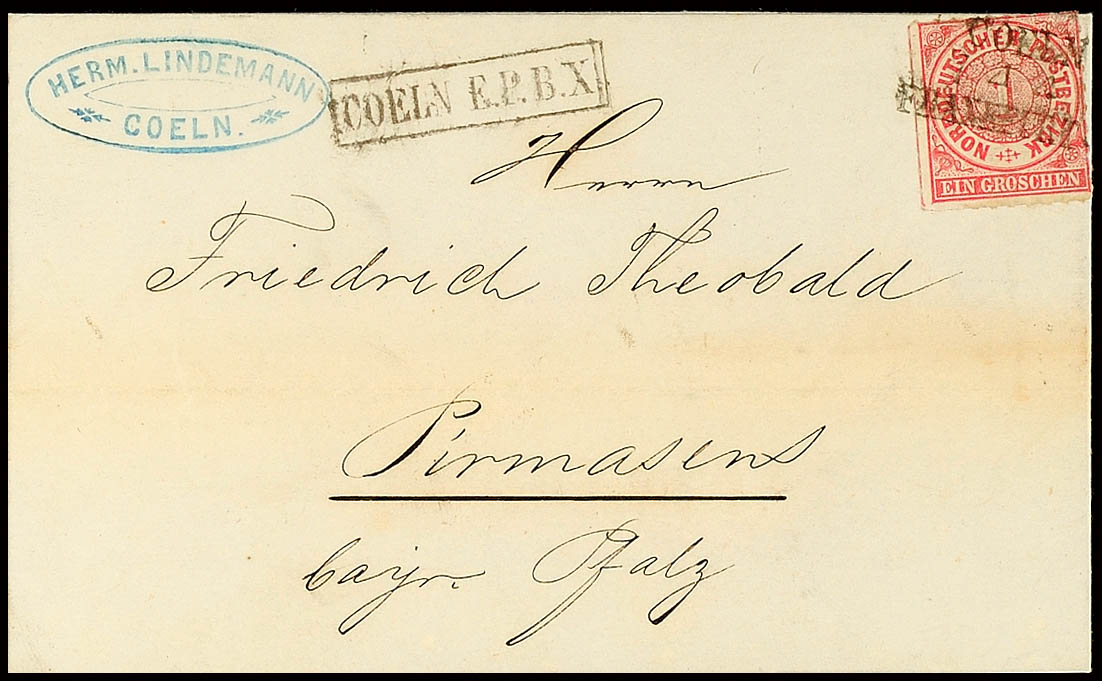 HERM. LINDEMANN
COELN.
COELN E.P.B.X
NORDDEUTSCHER POSTBEZIRK
1
EIN GROSCHEN
Herrn
Friedrich Theobald
Pirmasens
bayr. Pfalz